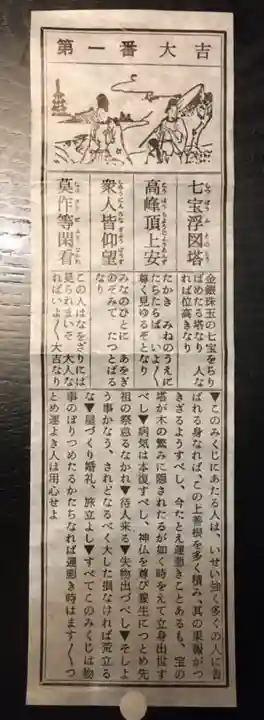 第一番大吉
七宝浮図塔
高峰頂上安
衆人皆仰望
莫作等閑看
金銀珠玉の七宝をちり
ばめたる塔なり 人な
れば位高きなり
たかき みねのうえに
たちたらば いよ〳〵
尊く見ゆるぞとなり
みなのひとに あをぎ
のぞみて たつとばる
この人はなをざりには
見られまいぞ 大人な
ればいよ〳〵大吉なり
▼このみくじにあたる人は、いせい強く多くの人に尊
ばれる身なれば、この上善根を多く積み、其の果報がつ
きざるようすべし、今たとえ運悪きことあるも、宝の
塔が木の繁みに隠されたるが如く時をえて立身出世す
べし▼病気は本復すべし、神仏を尊び養生につとめ先
祖の祭怠るなかれ▼待人来る▼失物出づべし▼そしよ
う事かなう、されどなるべく大した損なければ荒立る
な▼屋づくり婚礼、旅立よし▼すべてこのみくじは物
事のぼりつめたるかたちなれば運悪き時はます〳〵つ
とめ運よき人は用心せよ